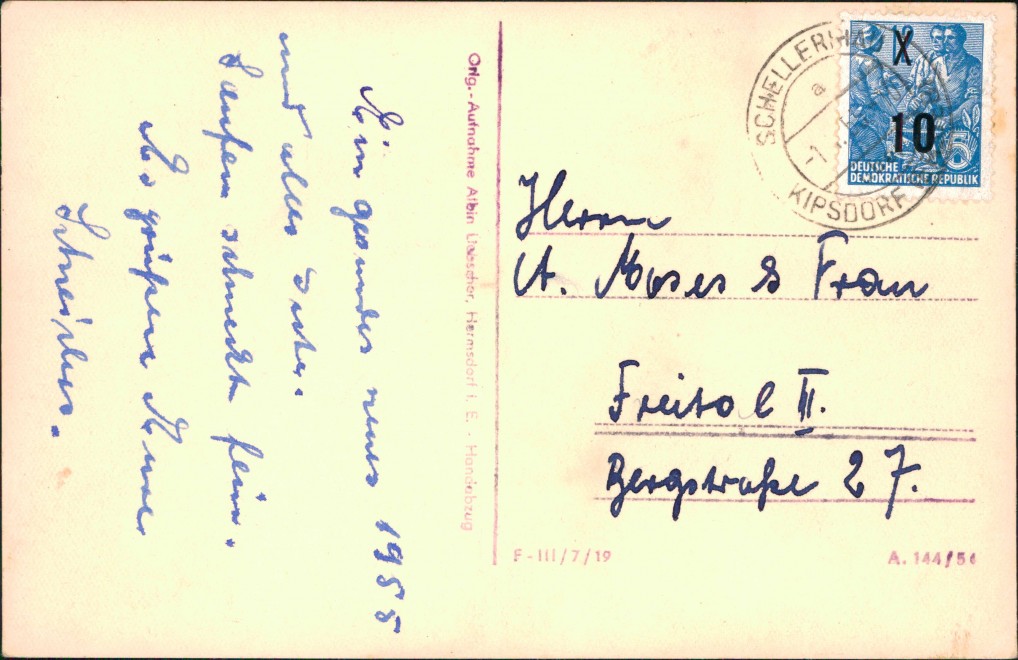 Ein gesundes neues 1955
und alles Gute.
Saufen schmeckt fein.
Es grüßen Eure
Schneiders.
Orig.-Aufnahme Albin Uebscher, Hermsdorf i. E. - Handabzug
SCHELLERHAU
a
KIPSDORF
X
10
5
DEUTSCHE
DEMOKRATISCHE REPUBLIK
Herrn
A. Moses & Frau
Freital II.
Bergstraße 27.
F-III/7/19
A. 144/54